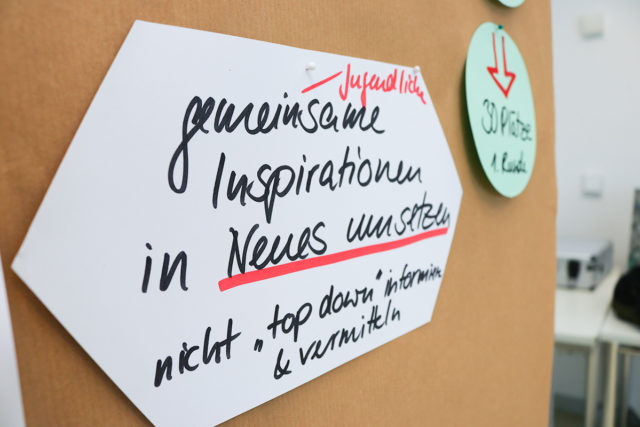 – Jugendliche
gemeinsame
Inspirationen
in Neues umsetzen
nicht „top down" informieren
& vermitteln
30 Plätze
1. Runde